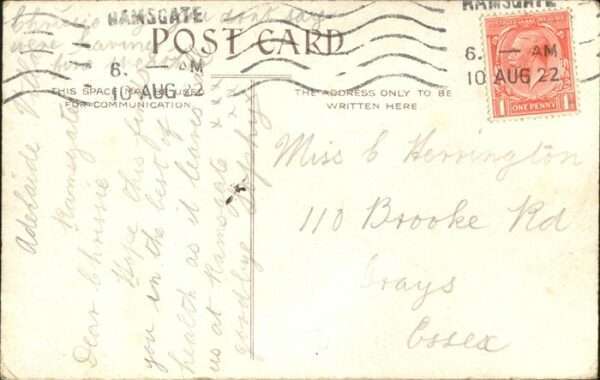 RAMSGATE
6. — AM
10 AUG 22
RAMSGATE
6. — AM
10 AUG 22
ONE PENNY
POST CARD
THIS SPACE MAY BE USED
FOR COMMUNICATION
THE ADDRESS ONLY TO BE
WRITTEN HERE
Miss E Herrington
110 Brooke Rd
Grays
Essex
Adelaide
Ramsgate
Dear Chrissie
Hope this finds
you in the best of
health as it leaves
us at Ramsgate xxx
goodbye
Chrissie you don't say